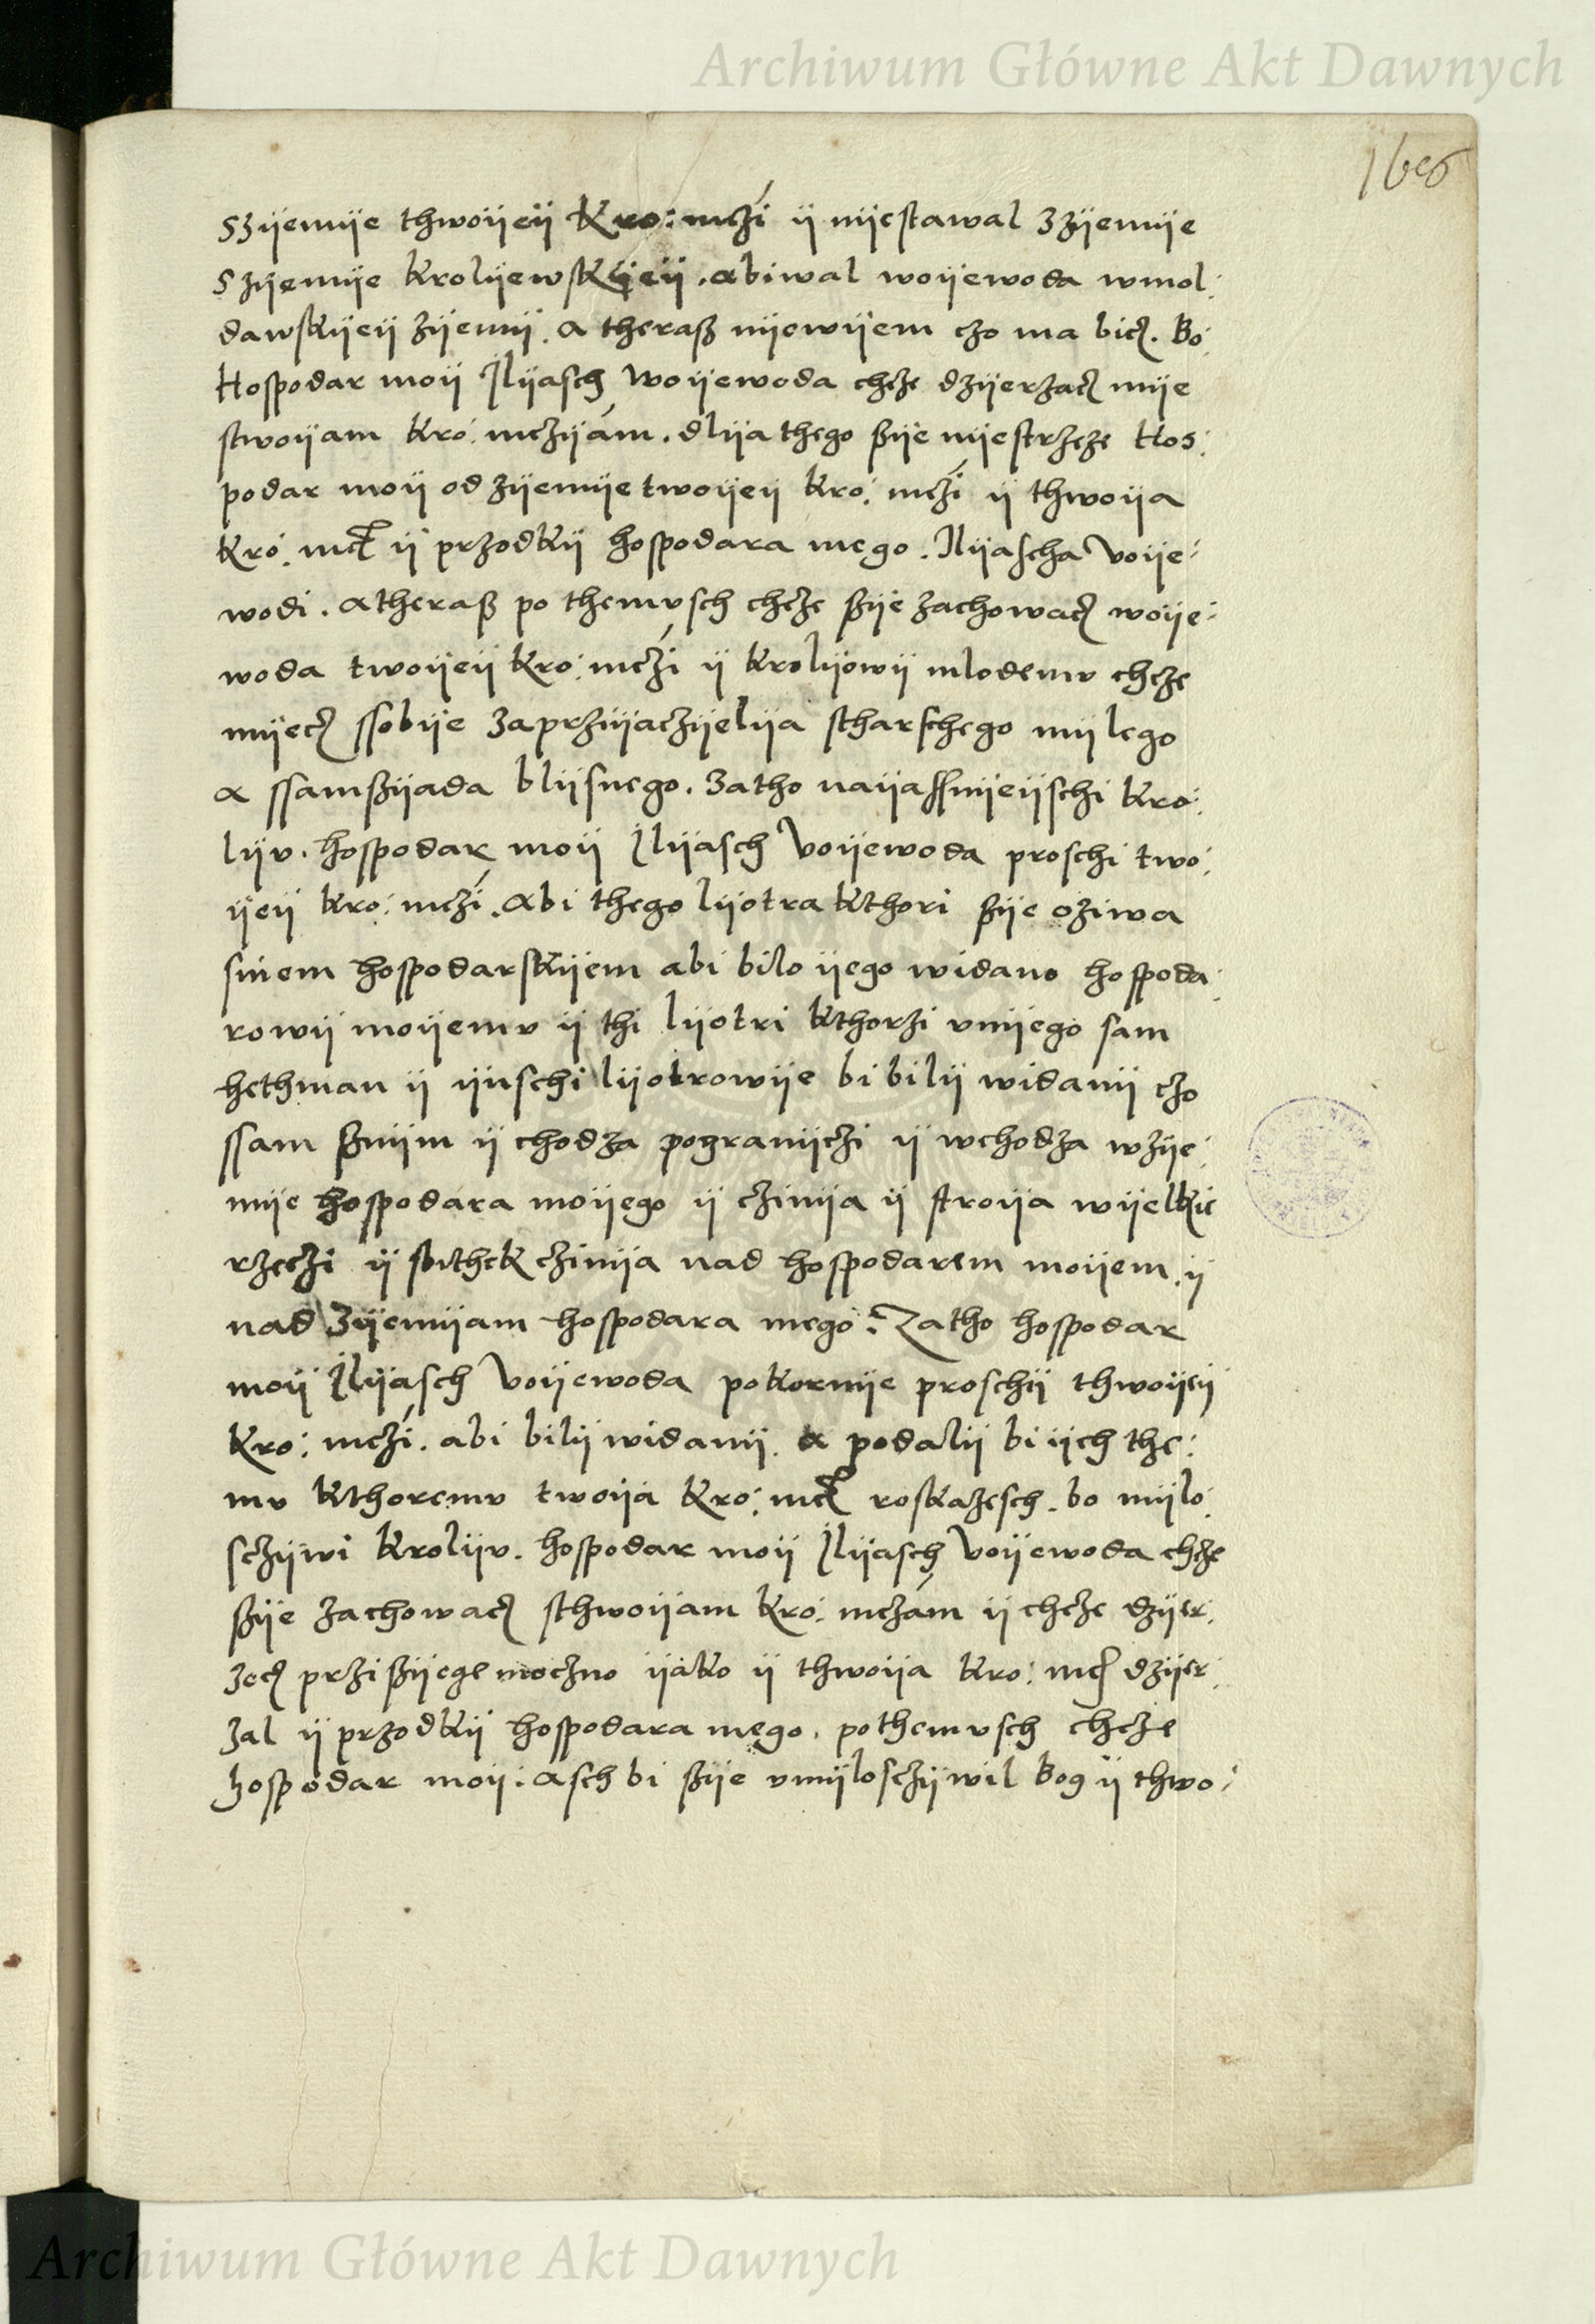 Archiwum Główne Akt Dawnych
szyemye thwoyey Kro: mczi y nyestawal zzyemye
szyemye krolyewskyey. abiwal woyewoda wmol:
dawskyey zyemy. a therasz nyewyem czo ma bicz. Bo
Hospodar moy Ilyasch Woyewoda chcze dzyerzacz mye
stwoyam kro: mczyam. dlya thego szye nyestrzeze Hos:
podar moy od zyemye twoyey kro: mczi y thwoya
kro: mczt y przodky hospodara mego. Ilyascha Voye:
wodi. atherasz po themvsch chcze szye zachowacz woye:
woda twoyey kro: mczi y krolyowy mlodemv chcze
myecz ssobye zaprzyyaczyelya starschego mylego
a ssamszyada blysnego. zatho nayassnyeyschi kro:
lyv. hospodar moy Ilyasch Voyewoda proschi two:
yey kro: mczi. abi thego lyotra kthori szye oziwa
sinem hospodarskyem abi bilo yego widano hospoda:
rowy moyemv y thi lyotri kthorzi vnyego sam
hethman y ynschi lyotrowye bi bily widany czo
ssam sznym y chodza pograniczi y wchodza wzye:
mye hospodara moyego y czinya y stroya wyelkie
rzeczi y sbithek czinya nad hospodarem moyem. y
nad zyemyam hospodara mego: Zatho hospodar
moy Ilyasch Voyewoda pokornye proschy thwoyey
kro: mczi. abi bily widany. a podaly bi ych the:
mv kthoremv twoya kro: mczt roskazesch. bo mylo:
sczywi krolyv. hospodar moy Ilyasch Voyewoda chcze
szye zachowacz sthwoyam kro: mczam y chcze dzyer:
zecz przi szyege moczno yako y thwoya kro: mcz dzyer:
zal y przodky hospodara mego. pothemvsch chcze
hospodar moy: asch bi szye vmylosczywil bog y thwo:
Archiwum Główne Akt Dawnych